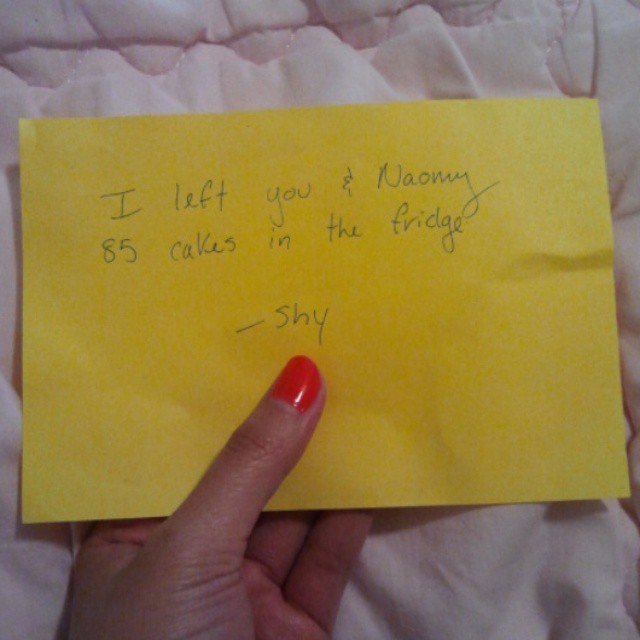 I left you & Naomy
85 cakes in the fridge
- Shy